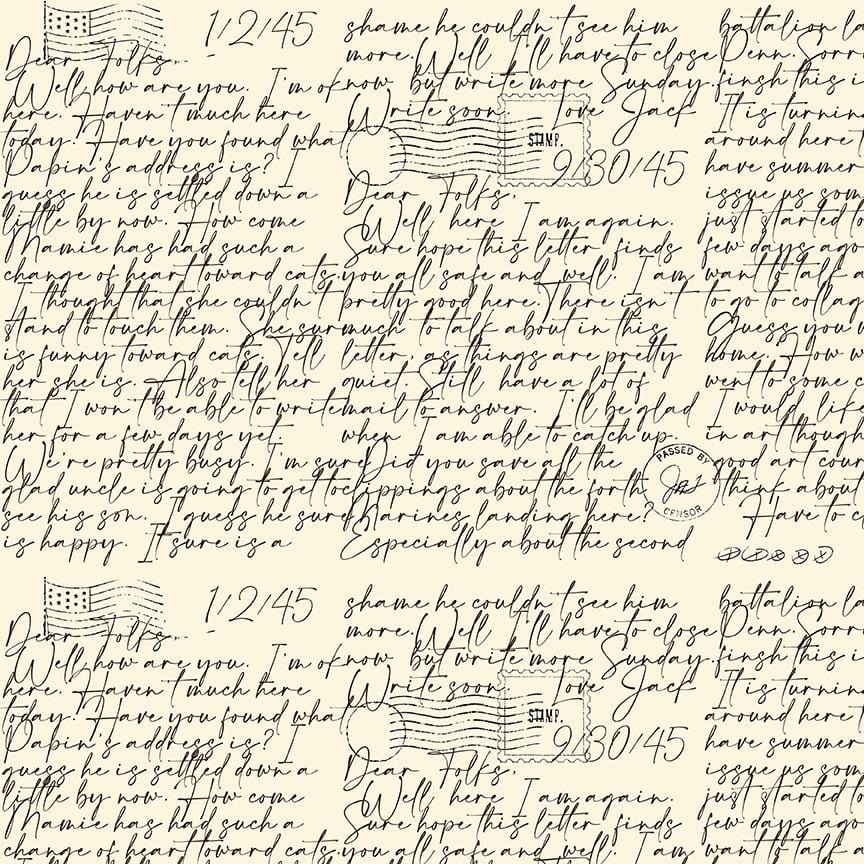 1/2/45
Dear Folks..
Well, how are you. I'm ok
here. Haven't much here
today. Have you found what
Papin's address is? I
guess he is settled down a
little by now. How come
Mamie has had such a
change of heart toward cats.
I thought that she couldn't
stand to touch them. She sur
is funny toward cats. Tell
her she is. Also tell her
that I won't be able to write
her for a few days yet.
We're pretty busy. I'm sure
glad uncle is going to get to
see his son. I guess he sure
is happy. It sure is a
shame he couldn't see him
more. Well I'll have to close
now but write more Sunday.
Write soon. Love Jack
STAMP.
9/30/45
Dear Folks.
Well, here I am again.
Sure hope this letter finds
you all safe and well. I am
pretty good here. There isn't
much to talk about in this
letter, as things are pretty
quiet. Still have a lot of
mail to answer. I'll be glad
when I am able to catch up.
Did you save all the
clippings about the forth
Marines landing here?
Especially about the second
PASSED BY
CENSOR
battalion la
Penn. Sorr
finsh this i
It is turnin
around here
have summer
issue us som
just started to
few days ago
want to talk a
to go to collag
Guess you w
home. How w
went to some c
I would like
in art though
good art cour
think about
Have to c
1/2/45
Dear Folks..
Well, how are you. I'm ok
here. Haven't much here
today. Have you found what
Papin's address is? I
guess he is settled down a
little by now. How come
Mamie has had such a
change of heart toward cats.
shame he couldn't see him
more. Well I'll have to close
now but write more Sunday.
Write soon. Love Jack
STAMP.
9/30/45
Dear Folks.
Well, here I am again.
Sure hope this letter finds
you all safe and well. I am
battalion la
Penn. Sorr
finsh this i
It is turnin
around here
have summer
issue us som
just started to
few days ago
want to talk a